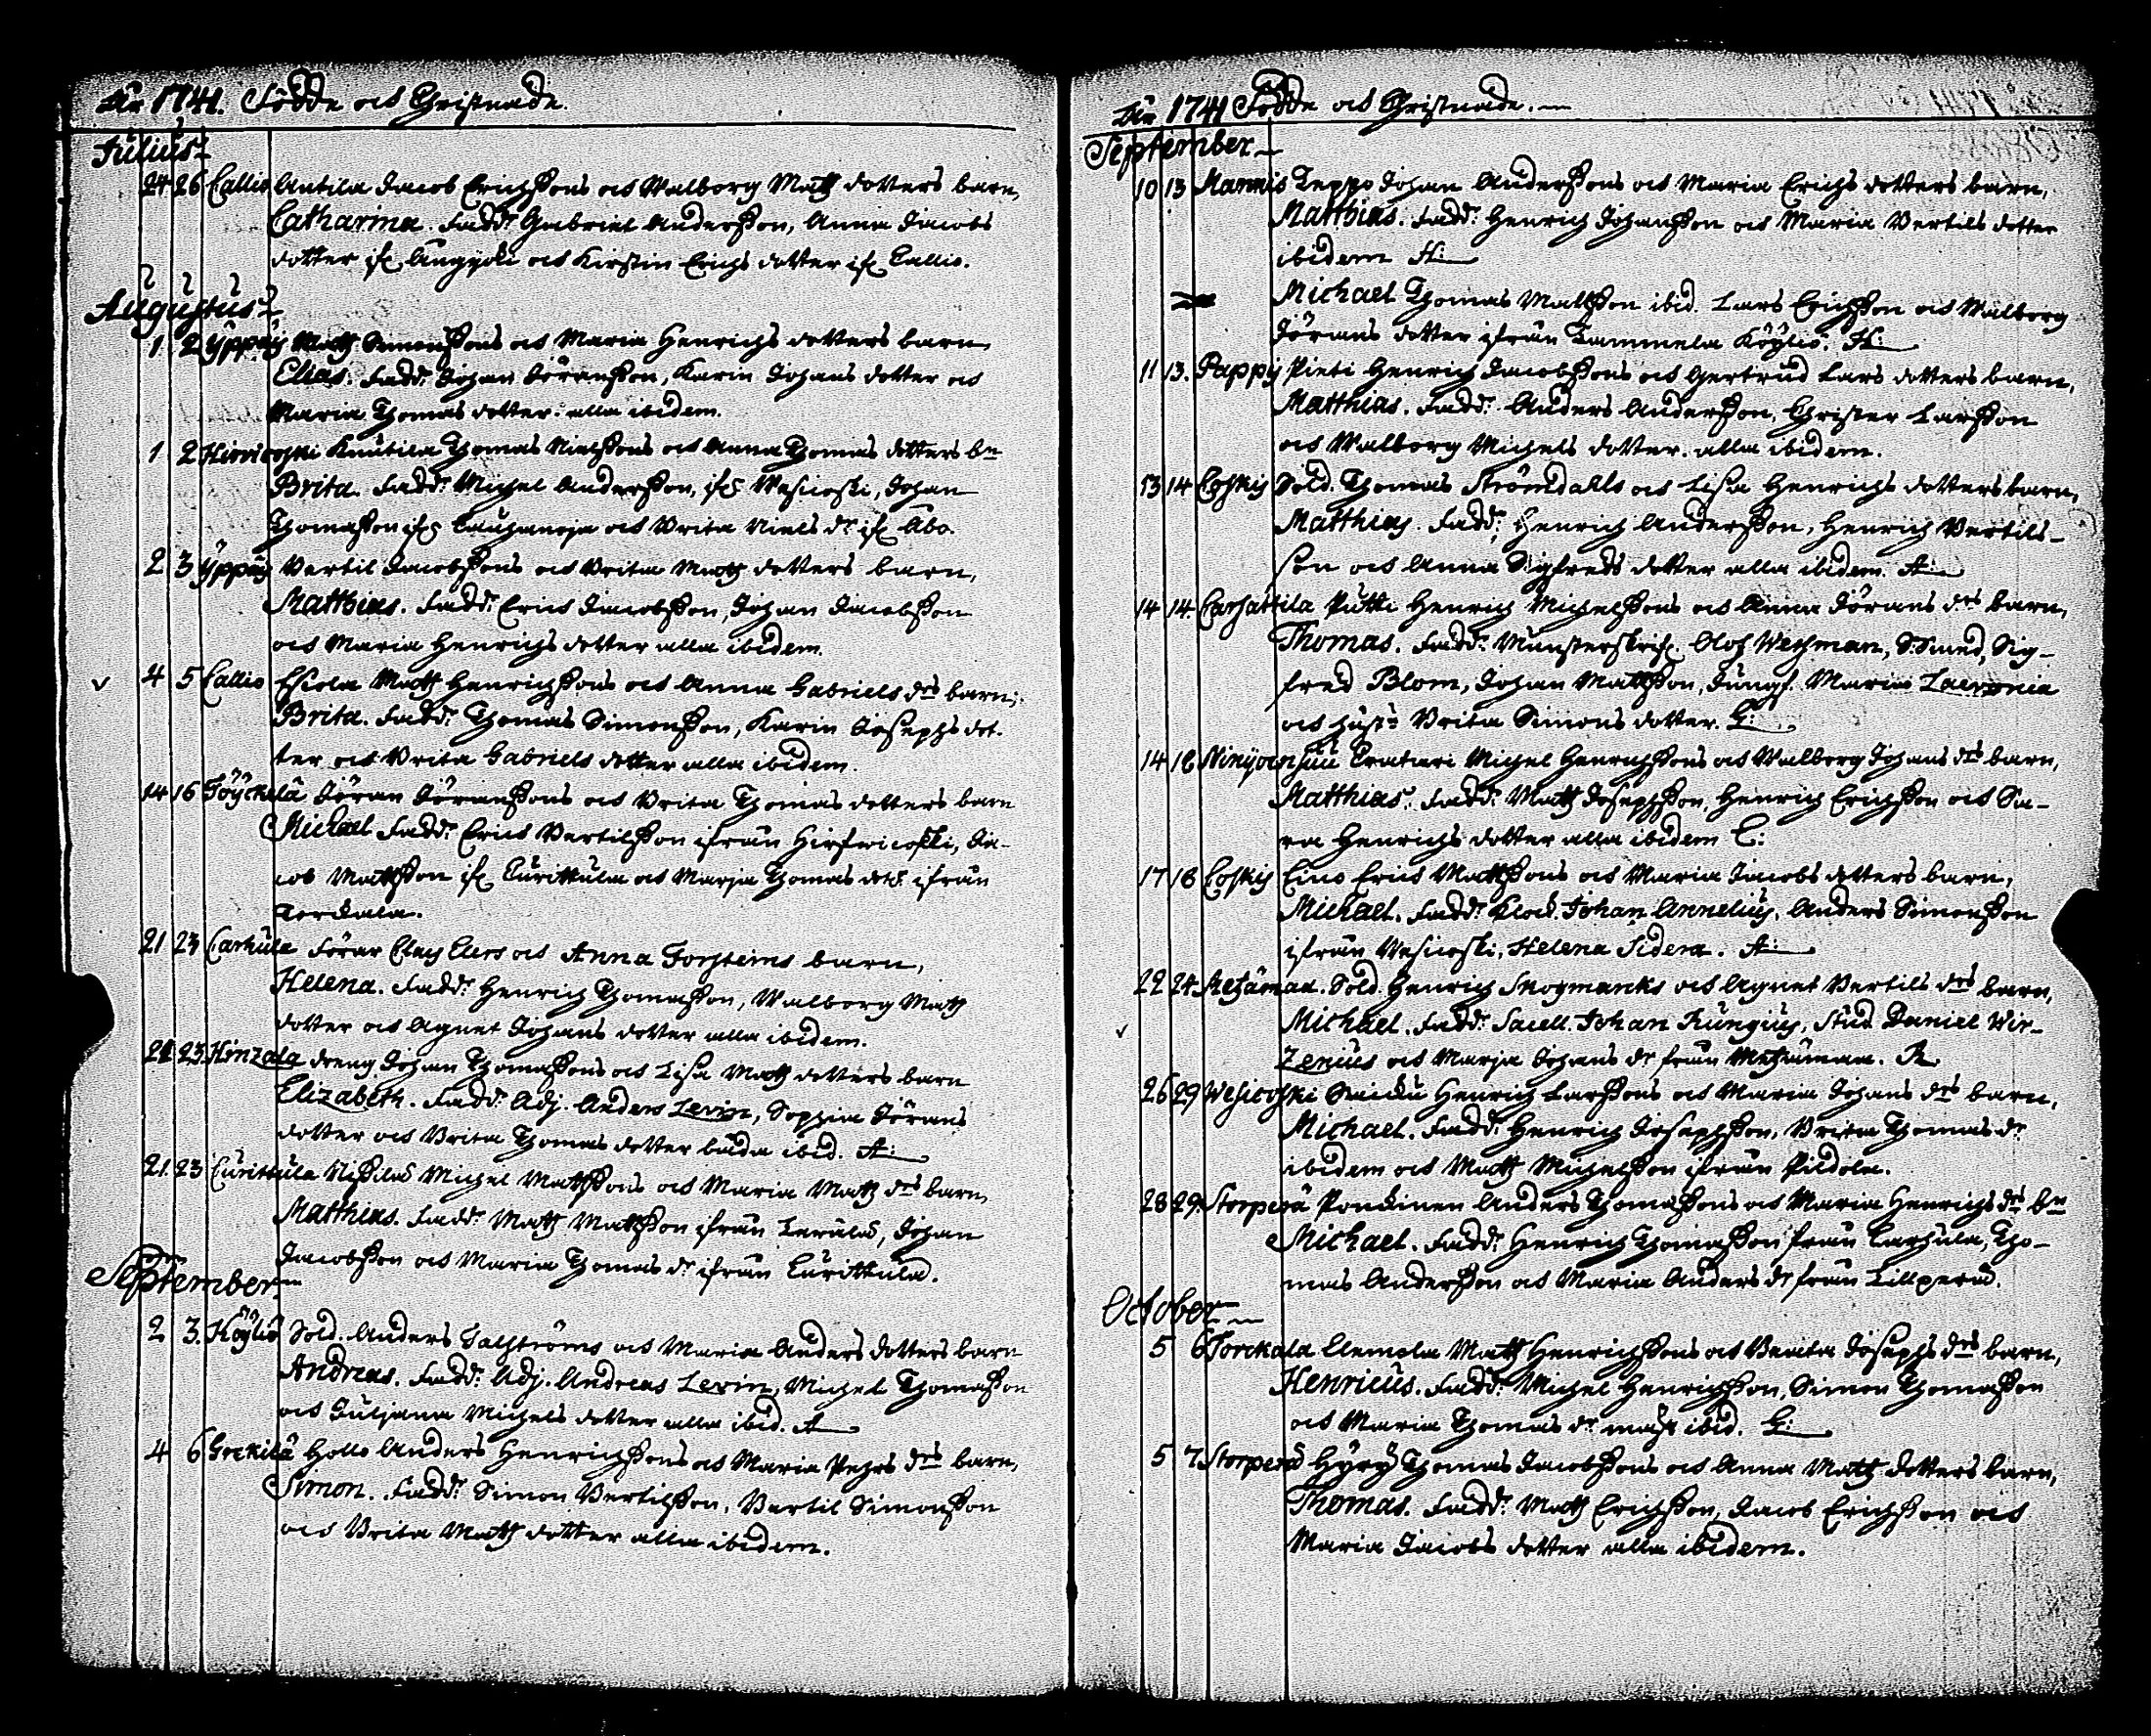 År 1741. Födde och Christnade.
Julius
24 26 Callio Antila Jacob Erichssons och Walborg Matts dotters barn,
Catharina. Fadd: Gabriel Andersson, Anna Jacobs
dotter if: och Kirstin Erichs dotter if: Callio.
Augustus
1 2 Yppäj Matts Simonssons och Maria Henrichs dotters barn
Elias. Fadd: Johan Göransson, Karin Johans dotter och
Maria Thomas dotter. alla ibidem.
1 2 Hirvicoski Knutila Thomas Nielssons och Anna Thomas dotters bn
Brita. Fadd: Michel Andersson, if: Vesicoski, Johan
Thomasson if: Cauhanoja och Brita Niels dr if: Åbo.
2 3 Yppäj Bertil Jacobssons och Brita Matts dotters barn,
Matthias. Fadd: Erich Jacobsson, Johan Jacobsson
och Maria Henrichs dotter alla ibidem.
4 5 Callio Eskola Matts Henrichssons och Anna Gabriels drs barn,
Brita. Fadd: Thomas Simonsson, Karin Josephs dot-
ter och Brita Gabriels dotter alla ibidem.
14 16 Göran Göranssons och Brita Thomas dotters barn
Michael Fadd: Erich Bertilsson ifrån Hirfwicoski, Ja-
cob Mattsson if: Curittula och Marja Thomas dots: ifrån
Torckala.
21 23 Carhula Förar Clas Elers och Anna Forsteins barn,
Helena. Fadd: Henrich Thomasson, Walborg Matts
dotter och Agnet Johans dotter alla ibidem.
21 23 Hinzala dreng Johan Thomassons och Lisa Matts dotters barn
Elizabeth. Fadd: Adj. Anders Levin, Sophia Görans
dotter och Brita Thomas dotter båda ibid. A:
21. 23 Curittula Michel Mattssons och Maria Matts drs barn,
Matthias. Fadd: Matts Mattsson ifrån Johan
Jacobsson och Maria Thomas dr ifrån Curittula.
September
2 3. Köyliö Sold. Anders Salströms och Maria Anders dotters barn
Andreas. Fadd: Adj. Andreas Levin, Michel Thomasson
och Juliana Michels dotter alla ibid. A
4 6 Hollo Anders Henrichssons och Maria Pehrs drs barn,
Simon. Fadd: Simon Bertilsson, Bertil Simonsson
och Brita Matts dotter alla ibidem.
År 1741 Födde och Christnade.
September
10 13 Mannis Teppo Johan Anderssons och Maria Erichs dotters barn,
Matthias. Fadd: Henrich Johansson och Maria Bertils dotter
ibidem A:
Michael Thomas Mattsson ibid. Lars Erichsson och Walborg
Görans dotter ifrån Tammela Köyliö. A:
11 13. Pappij Pieti Henrich Jacobssons och Gertrud Lars dotters barn,
Matthias. Fadd: Anders Andersson, Christer Larsson
och Walborg Michels dotter. alla ibidem.
13 14 Coskis Sold. Thomas Strömdalls och Lisa Henrichs dotters barn,
Matthias. Fadd: Henrich Andersson, Henrich Bertils-
son och Anna Sigfreds dotter alla ibidem. A:
14 14. Carhattila Putti Henrich Michelssons och Anna Görans drs barn,
Thomas. Fadd: Munsterskrif. Olof Wechman, S:Smed, Sig-
fred Blom, Johan Mattsson, Jungf. Maria Laevonia
och hust: Brita Simons dotter. L:
14 18 Michel Henrichssons och Walborg Johans drs barn,
Matthias. Fadd: Matts Josephsson, Henrich Erichsson och Sa-
ra Henrichs dotter alla ibidem L:
17 18 Coskis Eino Erich Mattssons och Maria Jacobs dotters barn,
Michael. Fadd: Klock. Johan Annelius, Anders Simonsson
ifrån Vesicoski, Helena Sidera. A:
22 24 Metzämaa. Sold. Henrich Skogmanks och Agnet Bertils drs barn,
Michael. Fadd: Sacell. Johan Rungius, Stud Daniel Wir-
zenius och Marja Johans dr från Metzämaa. R
26 29 Wesicoski Henrich Larssons och Maria Johans drs barn,
Michael. Fadd: Henrich Josephsson, Brita Thomas dr
ibidem och Matts Michelsson ifrån Pildola.
28 29. Storperä Ponckinen Anders Thomassons och Maria Henrichs drs bn
Michael. Fadd: Henrich Thomasson från Carhula, Tho-
mas Andersson och Maria Anders dr från Lillperä.
October
5 6 Torckala Clemola Matts Henrichssons och Beata Josephs drs barn,
Henricus. Fadd: Michel Henrichsson, Simon Thomasson
och Maria Thomas dr ibid. L:
5 7. Storperä Hyry Thomas Jacobssons och Anna Matts dotters barn,
Thomas. Fadd: Matts Erichsson, Jacob Erichsson och
Maria Jacobs dotter alla ibidem.